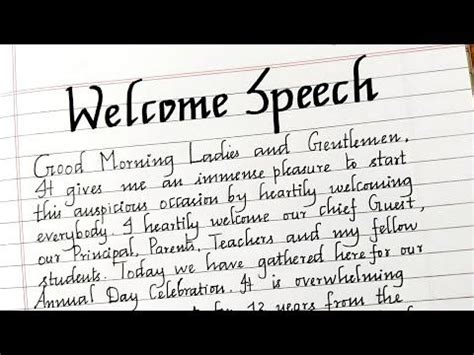 Welcome Speech
Good Morning Ladies and Gentlemen.
It gives me an immense pleasure to start
this auspicious occasion by heartily welcoming
everybody. I heartily welcome our chief Guest,
our Principal, Parents, Teachers and my fellow
students. Today we have gathered here for our
Annual Day Celebration. It is overwhelming
12 years from the